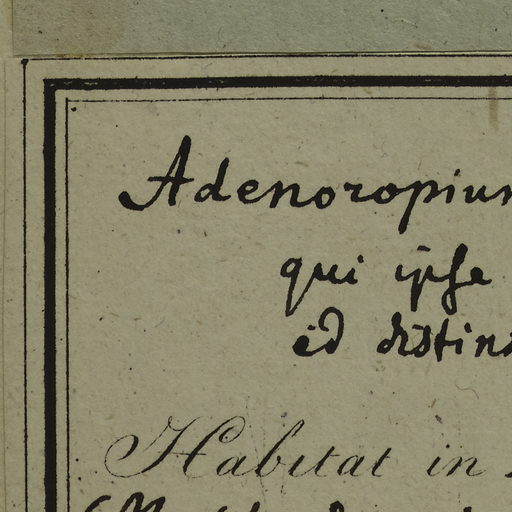 Adenoropium
qui ipse
id distinx
Habitat in